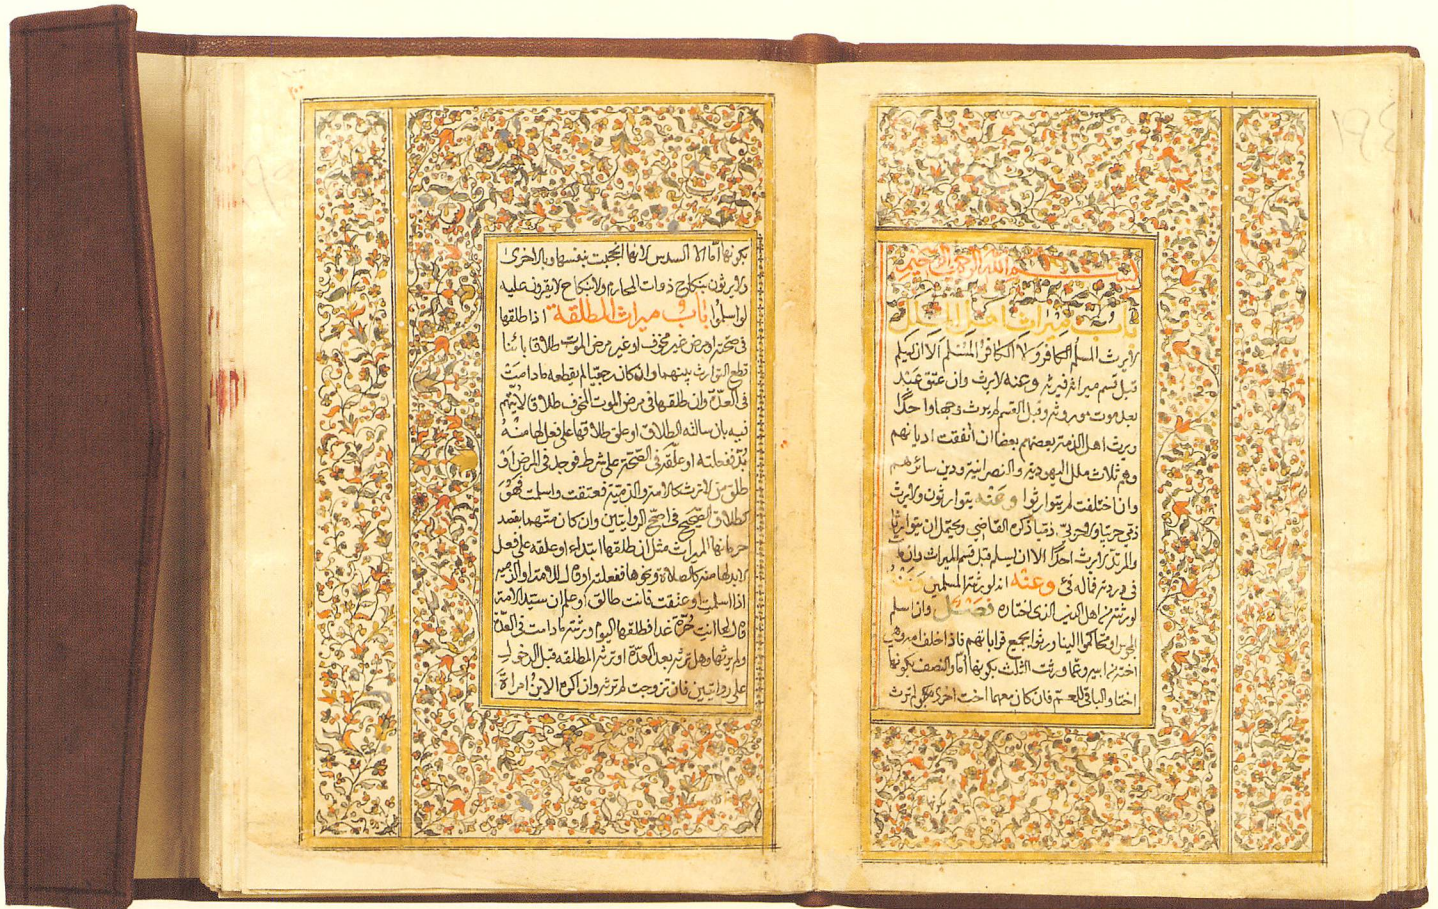 ١٩٤
بسم الله الرحمن الرحيم
باب ميراث اهل الملل
لا يرث المسلم الكافر ولا الكافر المسلم الا ان يسلم
قبل قسم ميراثه فيرثه وعنه لا يرث وان عتق عبد
بعد موت موروثه وقبل القسم لم يرث وجها واحدا
ويرث اهل الذمة بعضهم بعضا ان اتفقت اديانهم
وهم ثلاث ملل اليهودية والنصرانية ودين سائرهم
وان اختلفت لم يتوارثوا وعنه يتوارثون ولا يرث
ذمي حربيا ولا حربي ذميا ذكره القاضي ويحتمل ان يتوارثا
والمرتد لا يرث احدا الا ان يسلم قبل قسم الميراث وان
في ردته فماله فيء وعنه انه لورثته المسلمين وعنه
لورثته من اهل الدين الذي اختاره فصل وان اسلم
المجوس او تحاكموا الينا ورثوا بجميع قراباتهم فاذا خلف امه وهي
اخته من ابيه وعما ورثت الثلث بكونها اما والنصف بكونها
اختا والباقي للعم فان كان معها اخت اخرى لم ترث
بكونها اما الا السدس لانها انحجبت بنفسها وبالاخرى
ولا يرثون بنكاح ذوات المحارم ولا بنكاح لا يقرون عليه
لو اسلموا باب ميراث المطلقة اذا طلقها
في صحته او مرض غير مخوف او غير مرض الموت طلاقا بائنا
قطع التوارث بينهما وان كان رجعيا لم يقطعه ما دامت
في العدة وان طلقها في مرض الموت المخوف طلاقا لا يتهم
فيه بان سالته الطلاق او علق طلاقها على فعل لها منه
بد ففعلته او علقه في الصحة على شرط فوجد في المرض او
طلق من لا ترث كالامة والذمية فعتقت واسلمت فهو
كطلاق الصحيح في اصح الروايتين وان كان متهما بقصد
حرمانها الميراث مثل ان طلقها ابتداء او علقه على فعل
لا بد لها منه كالصلاة ونحوها ففعلته او قال للامة او الذمية
اذا اسلمت او عتقت فانت طالق او علم ان سيد الامة
قال لها انت حرة غدا فطلقها اليوم ورثته ما دامت في العدة
ولم يرثها وهل ترثه بعد العدة او ترثه المطلقة قبل الدخول
على روايتين فان تزوجت لم ترثه وان اكره الابن امراة